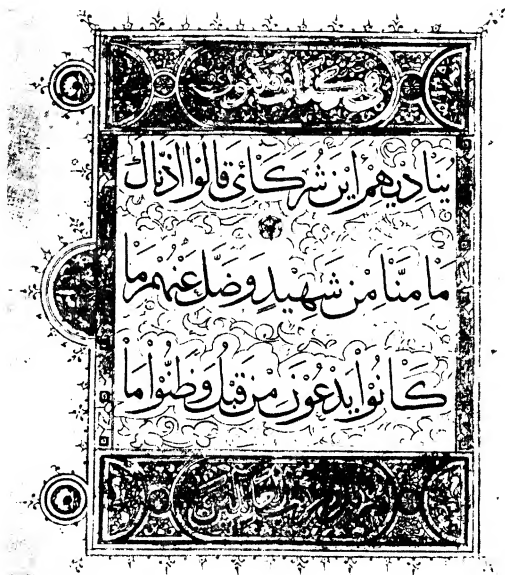 في كتاب مكنون
يُنَادِيهِمْ اَيْنَ شُرَكَائِي قَالُوا اٰذَنَّاكَ
مَا مِنَّا مِنْ شَهِيدٍ وَضَلَّ عَنْهُمْ مَا
كَانُوْا يَدْعُوْنَ مِنْ قَبْلُ وَظَنُّوْا مَا
تنزيل من رب العالمين